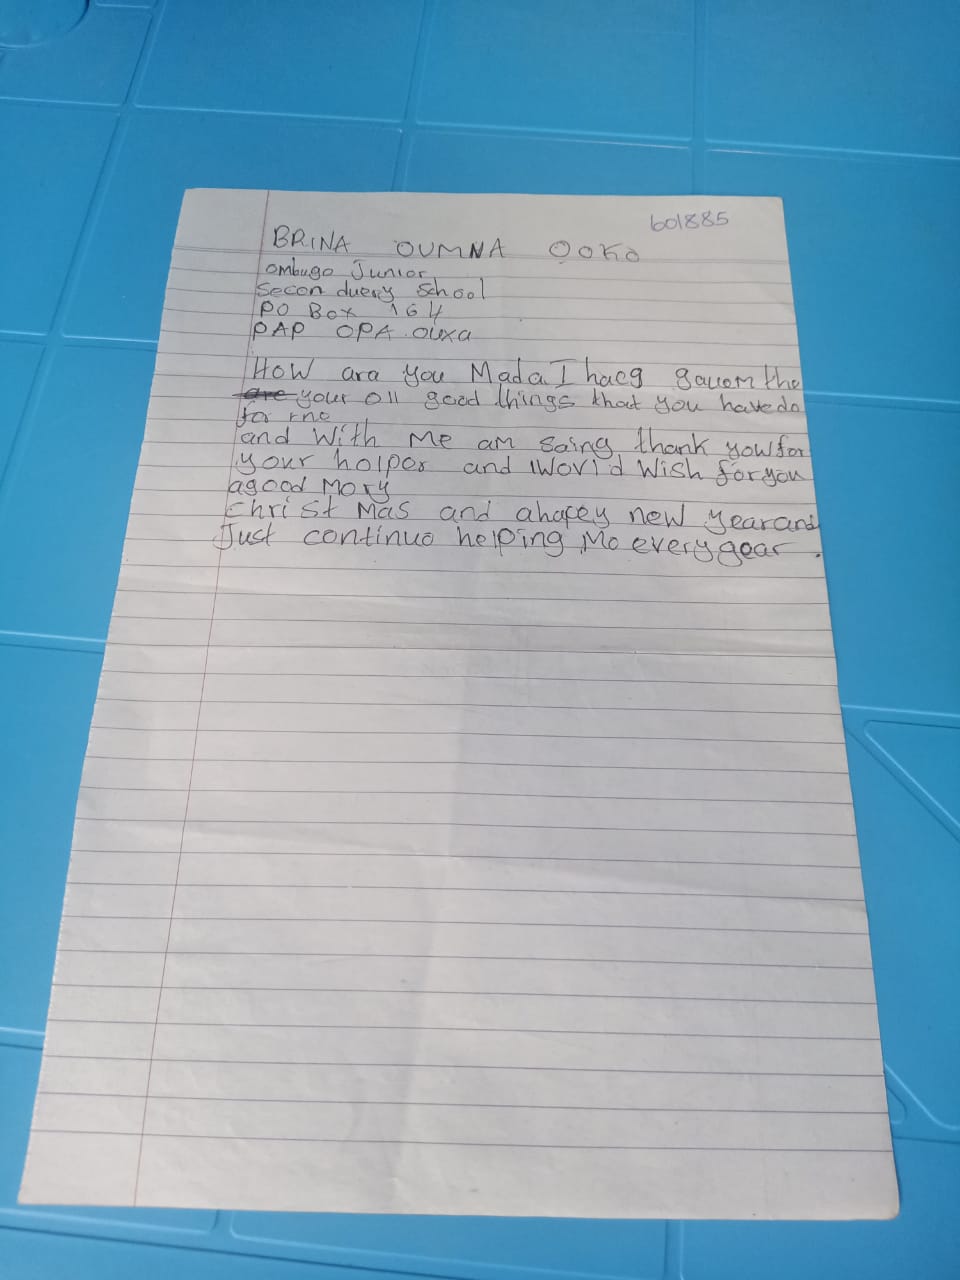 601885
BRINA OUMNA OOKO
ombugo Junior
Secon duery School
PO Box 164
PAP OPA. Olexa
How ara you Mada I haeg gauem the
are your oll good things that you have do
for me
and With Me am saing thank yow for
your holpes and Worl'd Wish for you
agood Mory
Chri St Mas and ahapey new year and
Just continuo helping Mo every gear.